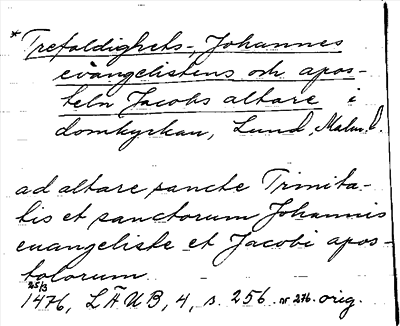 * Trefaldighets-, Johannes
evangelistens och apos-
teln Jacobs altare i
domkyrkan, Lund, Malm. l.
ad altare sancte Trinita-
tis et sanctorum Johannis
euangeliste et Jacobi apos-
tolorum
25/3
1476, LÄUB, 4, s. 256 nr 276. orig.